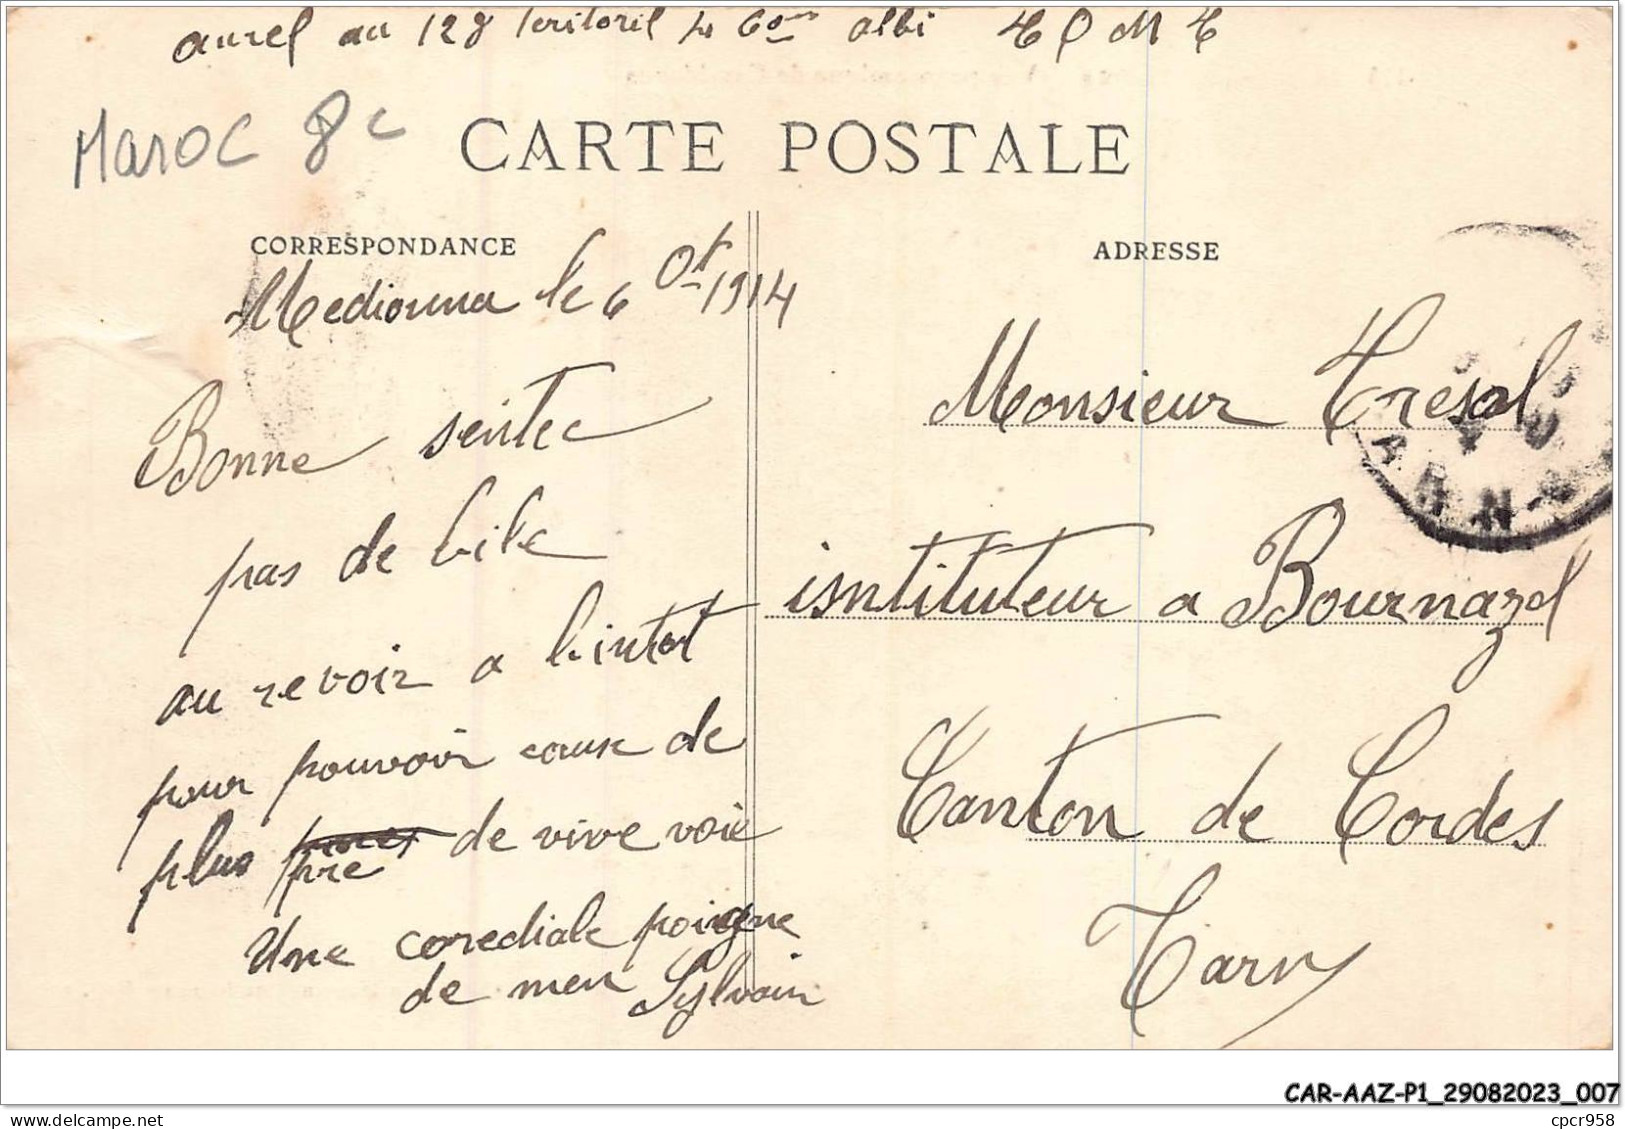 aurel au 128 Teritoril 4 Com albi
Maroc 8c
CARTE POSTALE
CORRESPONDANCE
Mediouna le 6 Ot 1914
Bonne sentee
pas de bile
au revoir a bintot
pour pouvoir cause de
plus pre de vive voie
Une corediale poigne
de men Sylvain
ADRESSE
Monsieur Tresol
isntituteur a Bournazel
Canton de Cordes
Tarn
TARN
CAR-AAZ-P1_29082023_007
cpcr958